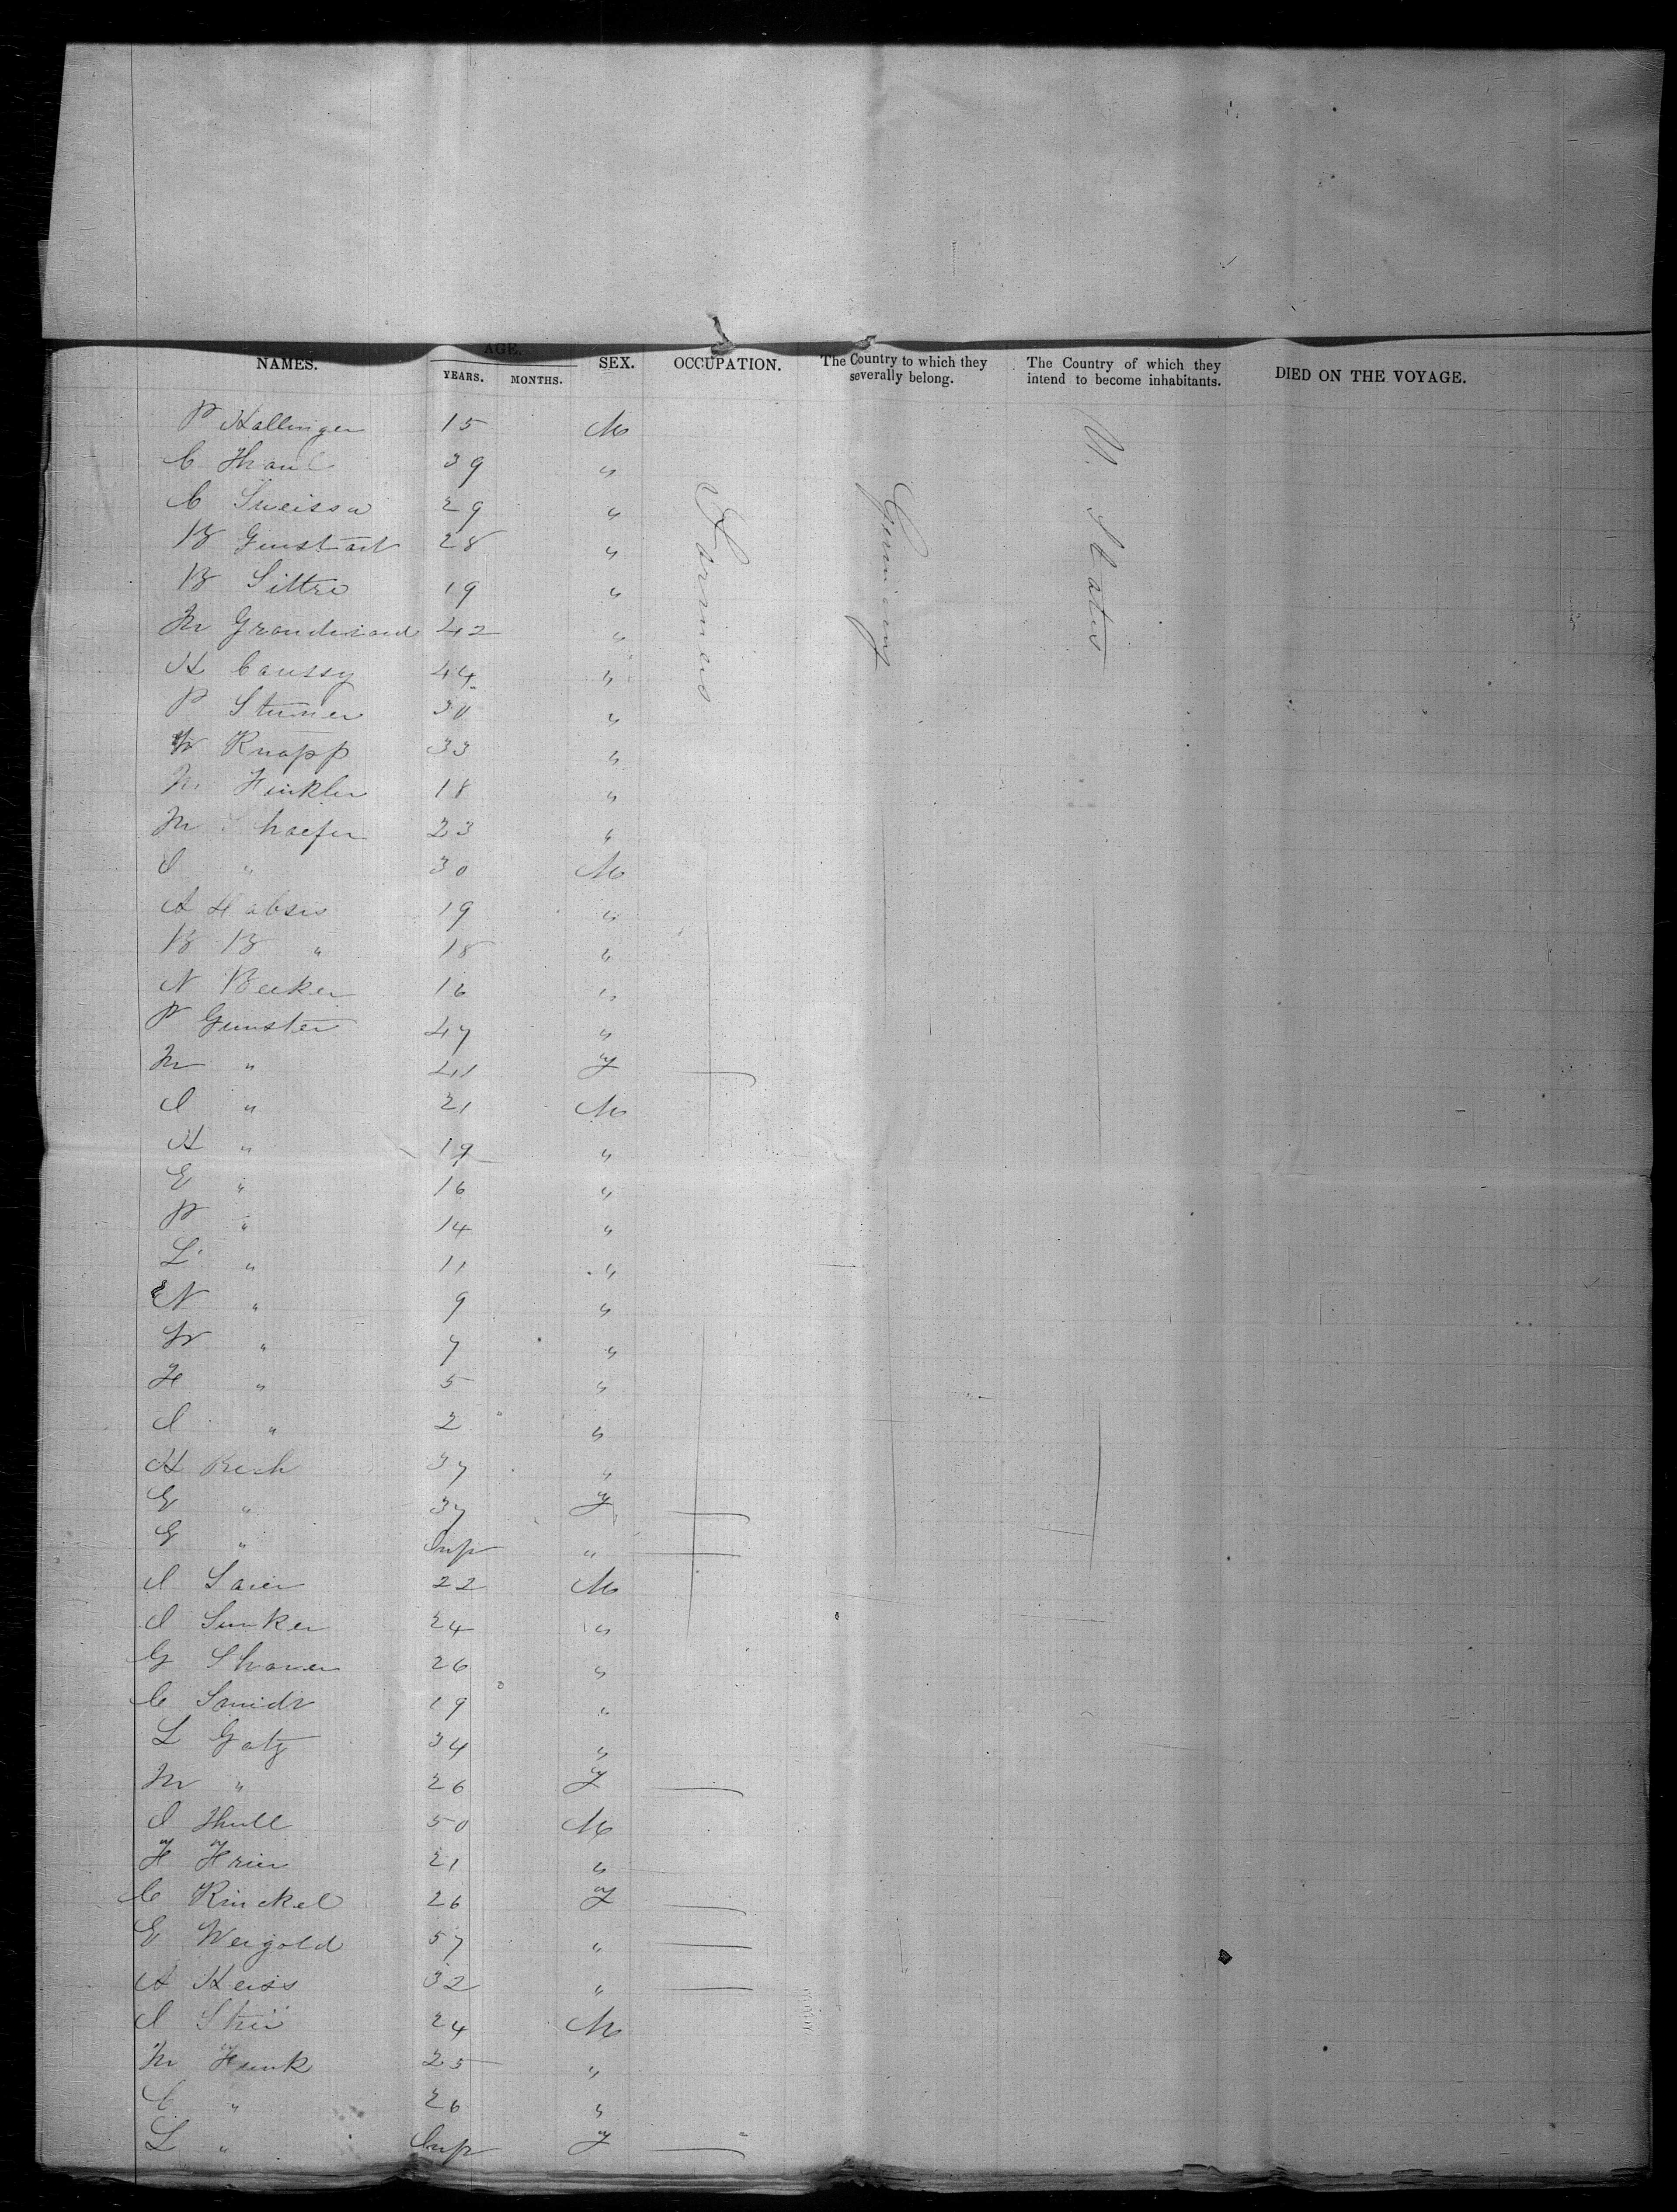 AGE.
NAMES. YEARS. MONTHS. SEX. OCCUPATION. The Country to which they severally belong. The Country of which they intend to become inhabitants. DIED ON THE VOYAGE.
P Hallinger 15 M Farmers Germany U. States
C Thaul 39 "
C Sueissa 29 "
B 28 "
B Sittre 19 "
M 42 "
H Caussy 44 "
P Stumer 30 "
W Knapp 33 "
M Finkler 18 "
M Shaefer 23 "
I " 30 M
A Habsis 19 "
B B " 18 "
N Becker 16 "
P Gunster 47 "
M " 41 F
I " 21 M
H " 19 "
E " 16 "
P " 14 "
L " 11 "
N " 9 "
W " 7 "
F " 5 "
I " 2 "
H Resh 37 "
E " 37 F
E " Inf "
I Saier 22 M
I Sunker 24 "
G Shaner 26 "
C Smidt 19 "
L Gatz 34 "
M " 26 F
I Thull 50 M
F Frier 21 "
C Kinckel 26 F
E Weigold 57 "
A Heiss 32 "
I 24 M
M Funk 25 "
C " 26 "
L " Inf F